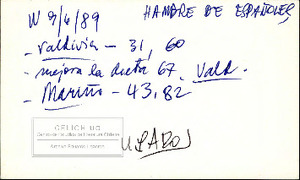 W 9/6/89 HAMBRE DE ESPAÑOLES
- Valdivia - 31, 60
- mejora la dieta 67. Vald.
- Mariño - 43, 82
CELICH UC